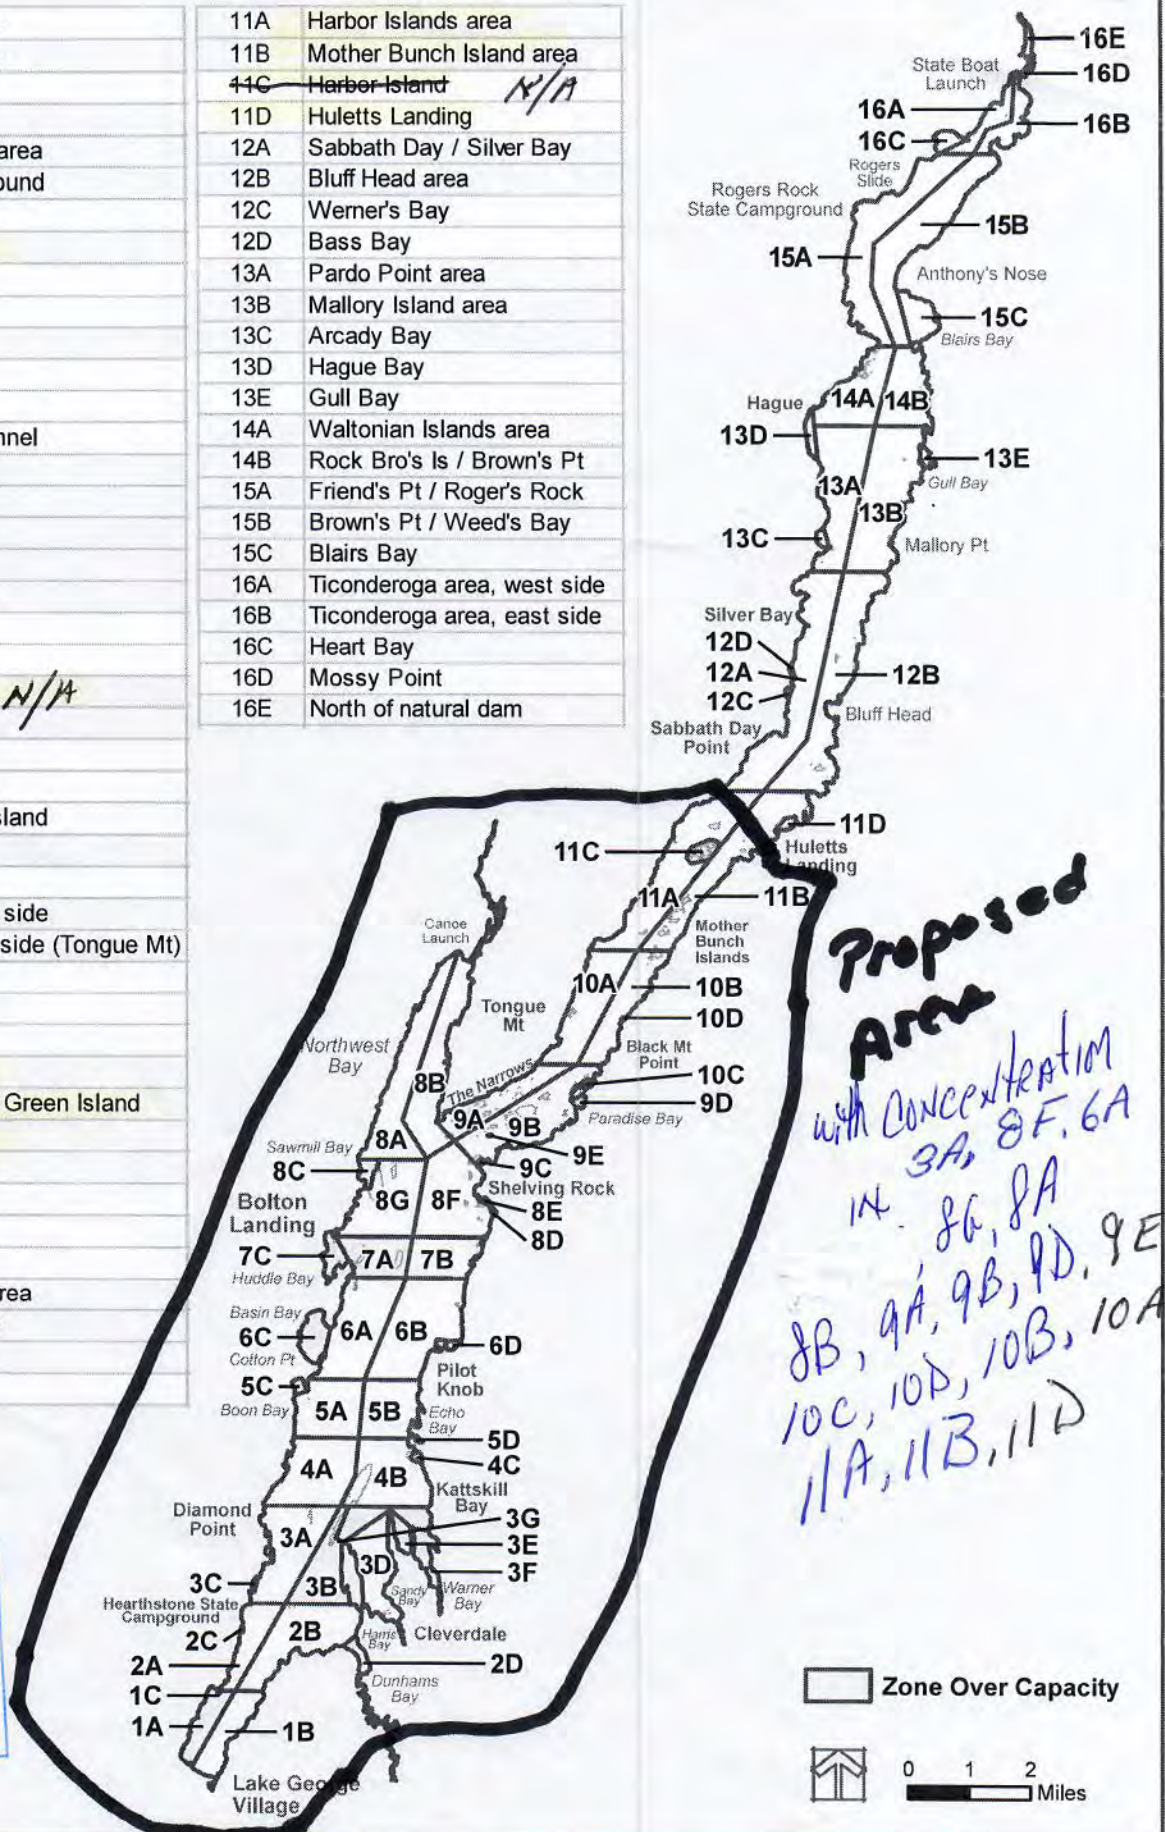 area
ound
nnel
N/A
sland
side
side (Tongue Mt)
Green Island
rea
11A Harbor Islands area
11B Mother Bunch Island area
11C Harbor Island N/A
11D Huletts Landing
12A Sabbath Day / Silver Bay
12B Bluff Head area
12C Werner's Bay
12D Bass Bay
13A Pardo Point area
13B Mallory Island area
13C Arcady Bay
13D Hague Bay
13E Gull Bay
14A Waltonian Islands area
14B Rock Bro's Is / Brown's Pt
15A Friend's Pt / Roger's Rock
15B Brown's Pt / Weed's Bay
15C Blairs Bay
16A Ticonderoga area, west side
16B Ticonderoga area, east side
16C Heart Bay
16D Mossy Point
16E North of natural dam
16E
State Boat
Launch
16D
16A
16B
16C
Rogers
Slide
Rogers Rock
State Campground
15B
15A
Anthony's Nose
15C
Blairs Bay
14A 14B
Hague
13D
13E
Gull Bay
13A
13B
13C
Mallory Pt
Silver Bay
12D
12A
12B
12C
Bluff Head
Sabbath Day
Point
11D
11C
Huletts
Landing
11A
11B
Mother
Bunch
Islands
Canoe
Launch
10A
10B
Tongue
Mt
10D
Northwest
Bay
Black Mt
Point
8B
The Narrows
10C
9D
9A
9B
Paradise Bay
8A
Sawmill Bay
9E
8C
9C
8G
8F
Shelving Rock
8E
Bolton
Landing
8D
7C
7A
7B
Huddle Bay
Basin Bay
6A
6B
6C
6D
Cotton Pt
Pilot
Knob
5C
5A
5B
Boon Bay
Echo
Bay
5D
4A
4B
4C
Kattskill
Bay
Diamond
Point
3A
3G
3E
3D
3F
3C
3B
Sandy
Bay
Warner
Bay
Hearthstone State
Campground
2B
Harris
Bay
Cleverdale
2C
2A
2D
1C
Dunhams
Bay
1A
1B
Lake George
Village
Proposed
Area
with CONCENTRATION
IN 3A, 8F, 6A
8G, 8A
8B, 9A, 9B, 9D, 9E
10C, 10D, 10B, 10A
11A, 11B, 11D
Zone Over Capacity
0 1 2
Miles